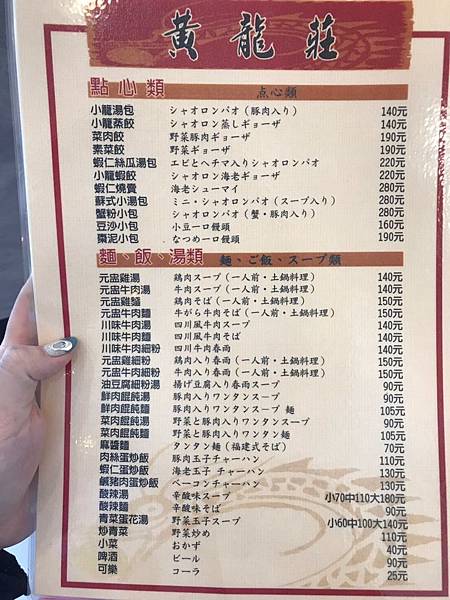 黃龍莊
點心類 点心類
小龍湯包 シャオロンパオ(豚肉入り) 140元
小龍蒸餃 シャオロン蒸しギョーザ 140元
菜肉餃 野菜豚肉ギョーザ 190元
素菜餃 野菜ギョーザ 190元
蝦仁絲瓜湯包 エビとヘチマ入りシャオロンパオ 220元
小龍蝦餃 シャオロン海老ギョーザ 220元
蝦仁燒賣 海老シューマイ 280元
蘇式小湯包 ミニ・シャオロンパオ(スープ入り) 280元
蟹粉小包 シャオロンパオ(蟹・豚肉入り) 280元
豆沙小包 小豆一口饅頭 160元
棗泥小包 なつめ一口饅頭 190元
麵、飯、湯類 麵、ご飯、スープ類
元盅雞湯 鶏肉スープ(一人前・土鍋料理) 140元
元盅牛肉湯 牛肉スープ(一人前・土鍋料理) 140元
元盅雞麵 鶏肉そば(一人前・土鍋料理) 150元
元盅牛肉麵 牛がら牛肉そば(一人前・土鍋料理) 150元
川味牛肉湯 四川風牛肉スープ 140元
川味牛肉麵 四川風牛肉そば 140元
川味牛肉細粉 四川牛肉春雨 140元
元盅雞細粉 鶏肉入り春雨(一人前・土鍋料理) 150元
元盅牛肉細粉 牛肉入り春雨(一人前・土鍋料理) 150元
油豆腐細粉湯 揚げ豆腐入り春雨スープ 90元
鮮肉餛飩湯 豚肉入りワンタンスープ 90元
鮮肉餛飩麵 豚肉入りワンタンスープ 麵 105元
菜肉餛飩湯 野菜と豚肉入りワンタンスープ 90元
菜肉餛飩麵 野菜と豚肉入りワンタン麵 105元
麻醬麵 タンタン麵(福建式そば) 70元
肉絲蛋炒飯 豚肉玉子チャーハン 110元
蝦仁蛋炒飯 海老玉子 チャーハン 130元
鹹豬肉蛋炒飯 ベーコンチャーハン 130元
酸辣湯 辛酸味スープ 小70中110大180元
酸辣麵 辛酸味そば 90元
青菜蛋花湯 野菜玉子スープ 小60中100大140元
炒青菜 野菜炒め 110元
小菜 おかず 40元
啤酒 ビール 90元
可樂 コーラ 25元